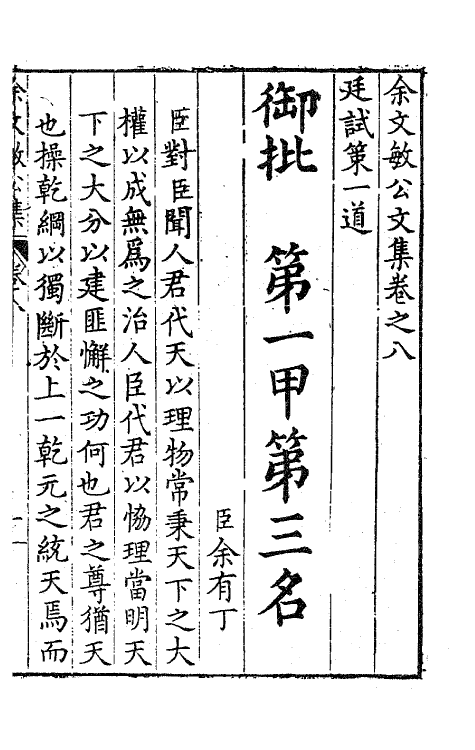 余文敏公文集卷之八
廷試策一道
御批　第一甲第三名
臣余有丁
臣對臣聞人君代天以理物常秉天下之大
權以成無爲之治人臣代君以恊理當明天
下之大分以建匪懈之功何也君之尊猶天
也操乾綱以獨斷於上一乾元之統天焉而
余文敏公集　卷八